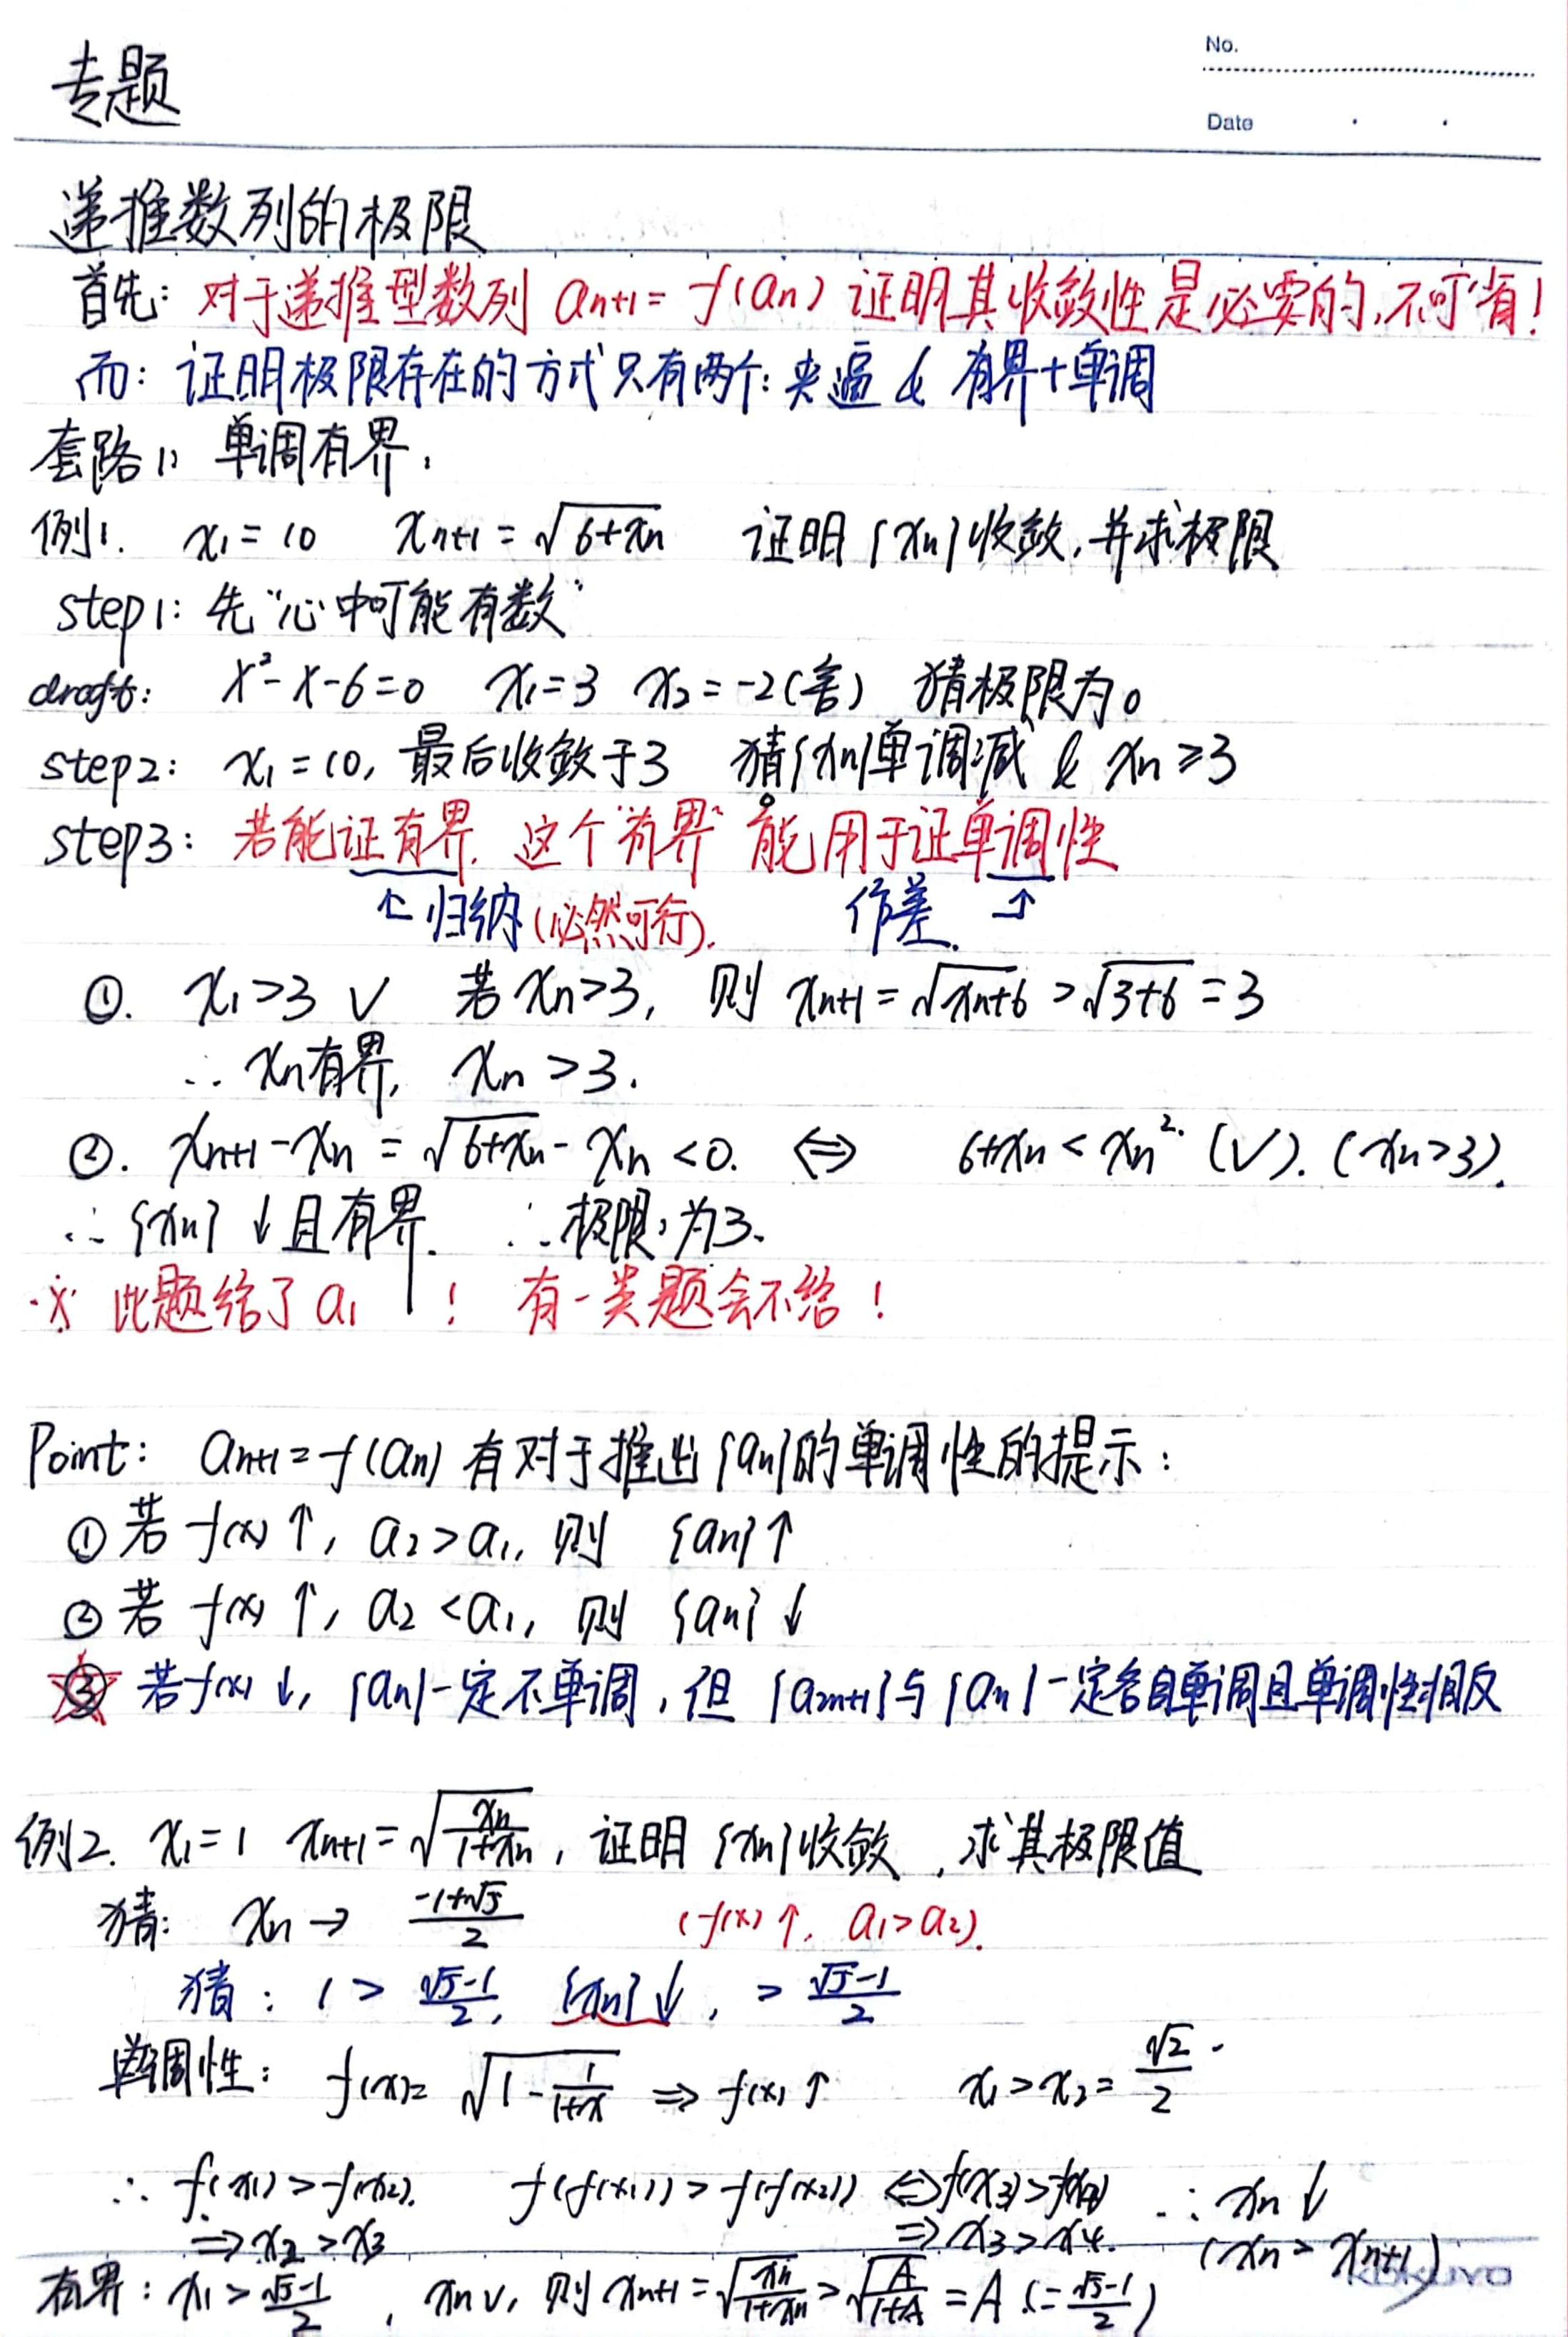 专题
No.
Date
递推数列的极限
首先: 对于递推型数列 aₙ₊₁ = f(aₙ) 证明其收敛性是必要的,不可省!
而: 证明极限存在的方式只有两个: 夹逼 & 有界+单调
套路1) 单调有界:
例1. x₁ = 10 xₙ₊₁ = √(6+xₙ) 证明{xₙ}收敛,并求极限
step1: 先“心中可能有数”
draft: x²-x-6=0 x₁=3 x₂=-2(舍) 猜极限为。
step2: x₁=10, 最后收敛于3 猜{xₙ}单调减 & xₙ≥3
step3: 若能证有界, 这个“有界”能用于证单调性
↑归纳(必然可行). 作差. ↑
①. x₁>3 √ 若xₙ>3, 则 xₙ₊₁=√(xₙ+6) > √(3+6) = 3
∴ xₙ有界, xₙ>3.
②. xₙ₊₁-xₙ = √(6+xₙ) - xₙ <0. ⇔ 6+xₙ < xₙ². (√). (xₙ>3).
∴ {xₙ} ↓且有界. ∴极限为3.
※ 此题给了a₁ ! 有一类题会不给!
Point: aₙ₊₁=f(aₙ) 有对于推出{aₙ}的单调性的提示:
①若 f(x)↑, a₂>a₁, 则 {aₙ}↑
②若 f(x)↑, a₂<a₁, 则 {aₙ}↓
③ 若f(x)↓, {aₙ}一定不单调, 但 {a₂ₙ₊₁}与{a₂ₙ}一定各自单调且单调性相反
例2. x₁=1 xₙ₊₁=√(xₙ/(1+xₙ)), 证明{xₙ}收敛, 求其极限值
猜: xₙ→ (-1+√5)/2 (f(x)↑, a₁>a₂).
猜: 1 > (√5-1)/2, {xₙ}↓, > (√5-1)/2
单调性: f(x)= √(1-1/(1+x)) ⇒ f(x)↑ x₁>x₂=√2/2.
∴ f(x₁)>f(x₂). f(f(x₁))>f(f(x₂)) ⇔f(x₂)>f(x₃) ∴ xₙ↓
⇒x₂>x₃ ⇒x₃>x₄. (xₙ>xₙ₊₁)
有界: x₁>(√5-1)/2, xₙ√, 则 xₙ₊₁=√(xₙ/(1+xₙ))>√(A/(1+A)) = A (=(√5-1)/2)
KOKUYO